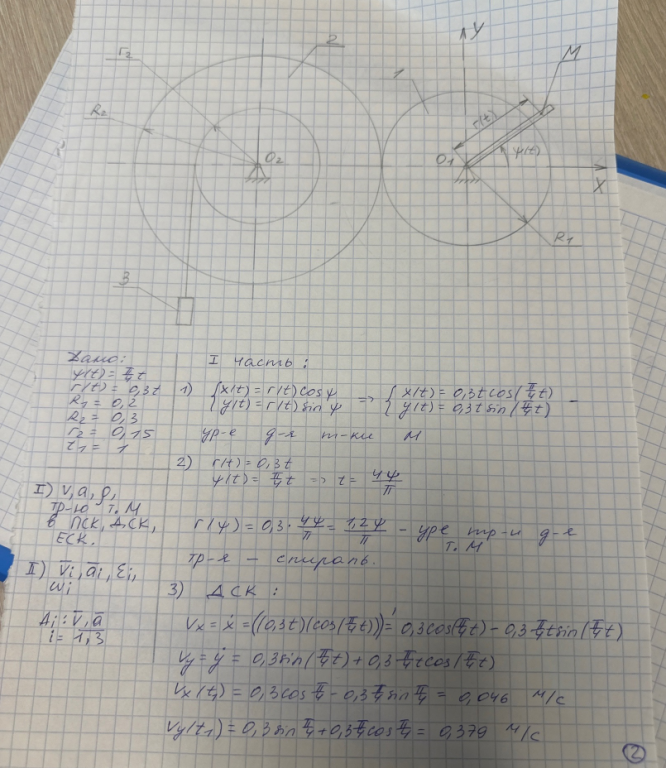 2
r₂
R₂
O₂
3
1
y
M
r(t)
O₁
ψ(t)
X
R₁
Дано:
ψ(t) = π/4 t
r(t) = 0,3t
R₁ = 0,2
R₂ = 0,3
r₂ = 0,15
t₁ = 1
I) v, a, ρ,
тр-ю т. М
в ПСК, ДСК,
ЕСК.
II) v̄i, āi, εi,
ωi
Ai: v̄, ā
i = 1,3
I часть:
1) {x(t) = r(t)cosψ y(t) = r(t)sinψ => {x(t) = 0,3t cos(π/4 t) y(t) = 0,3t sin(π/4 t) –
ур-е д-я т-ки М
2) r(t) = 0,3t
ψ(t) = π/4 t => t = 4ψ/π
r(ψ) = 0,3 · 4ψ/π = 1,2ψ/π – уре тр-и д-я
т. М
тр-я – спираль.
3) ДСК:
Vx = ẋ = ((0,3t)(cos(π/4 t)))' = 0,3cos(π/4 t) – 0,3 π/4 t sin(π/4 t)
Vy = ẏ = 0,3sin(π/4 t) + 0,3 π/4 t cos(π/4 t)
Vx(t₁) = 0,3cos π/4 – 0,3 π/4 sin π/4 = 0,046 м/с
Vy(t₁) = 0,3 sin π/4 + 0,3 π/4 cos π/4 = 0,379 м/с
2